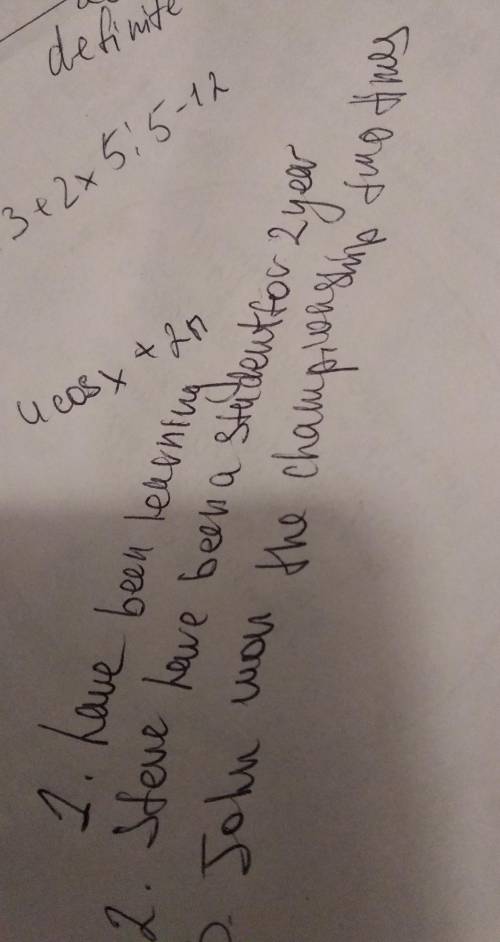 definite
3+2x 5:5-12
4 cos x
1. have been learning
2. Steve have been a student for 2 year
John won the championship two times